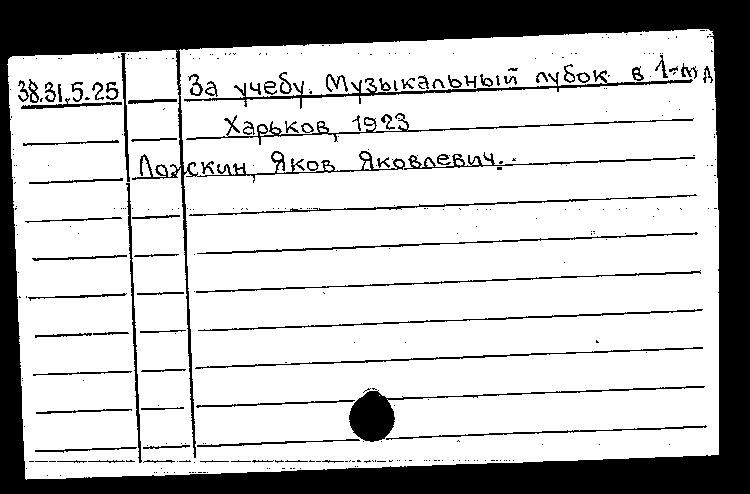 38.31.5.25 За учебу. Музыкальный лубок в 1-м д
Харьков, 1923
Яков Яковлевич.